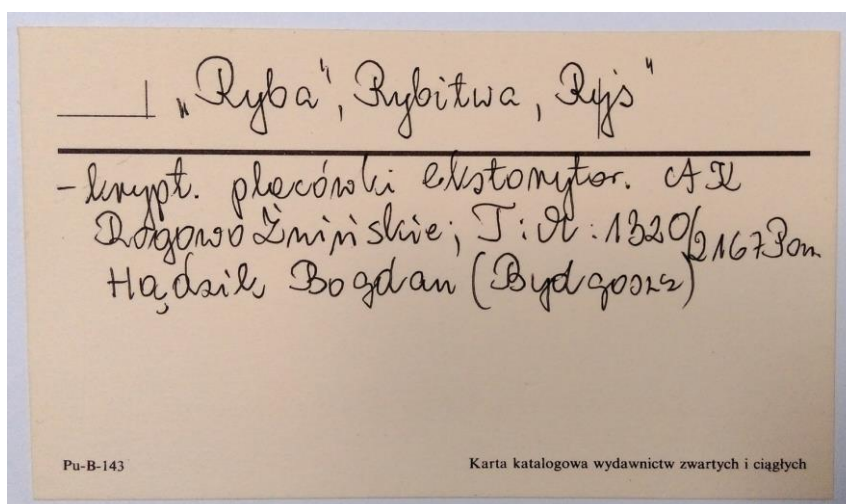 „Ryba", Rybitwa, Ryś"
- krypt. placówki eksterytor. AK
Rogowo Żnińskie; T: M: 1320/2167 Pom.
Hądzik Bogdan (Bydgoszcz)
Pu-B-143
Karta katalogowa wydawnictw zwartych i ciągłych